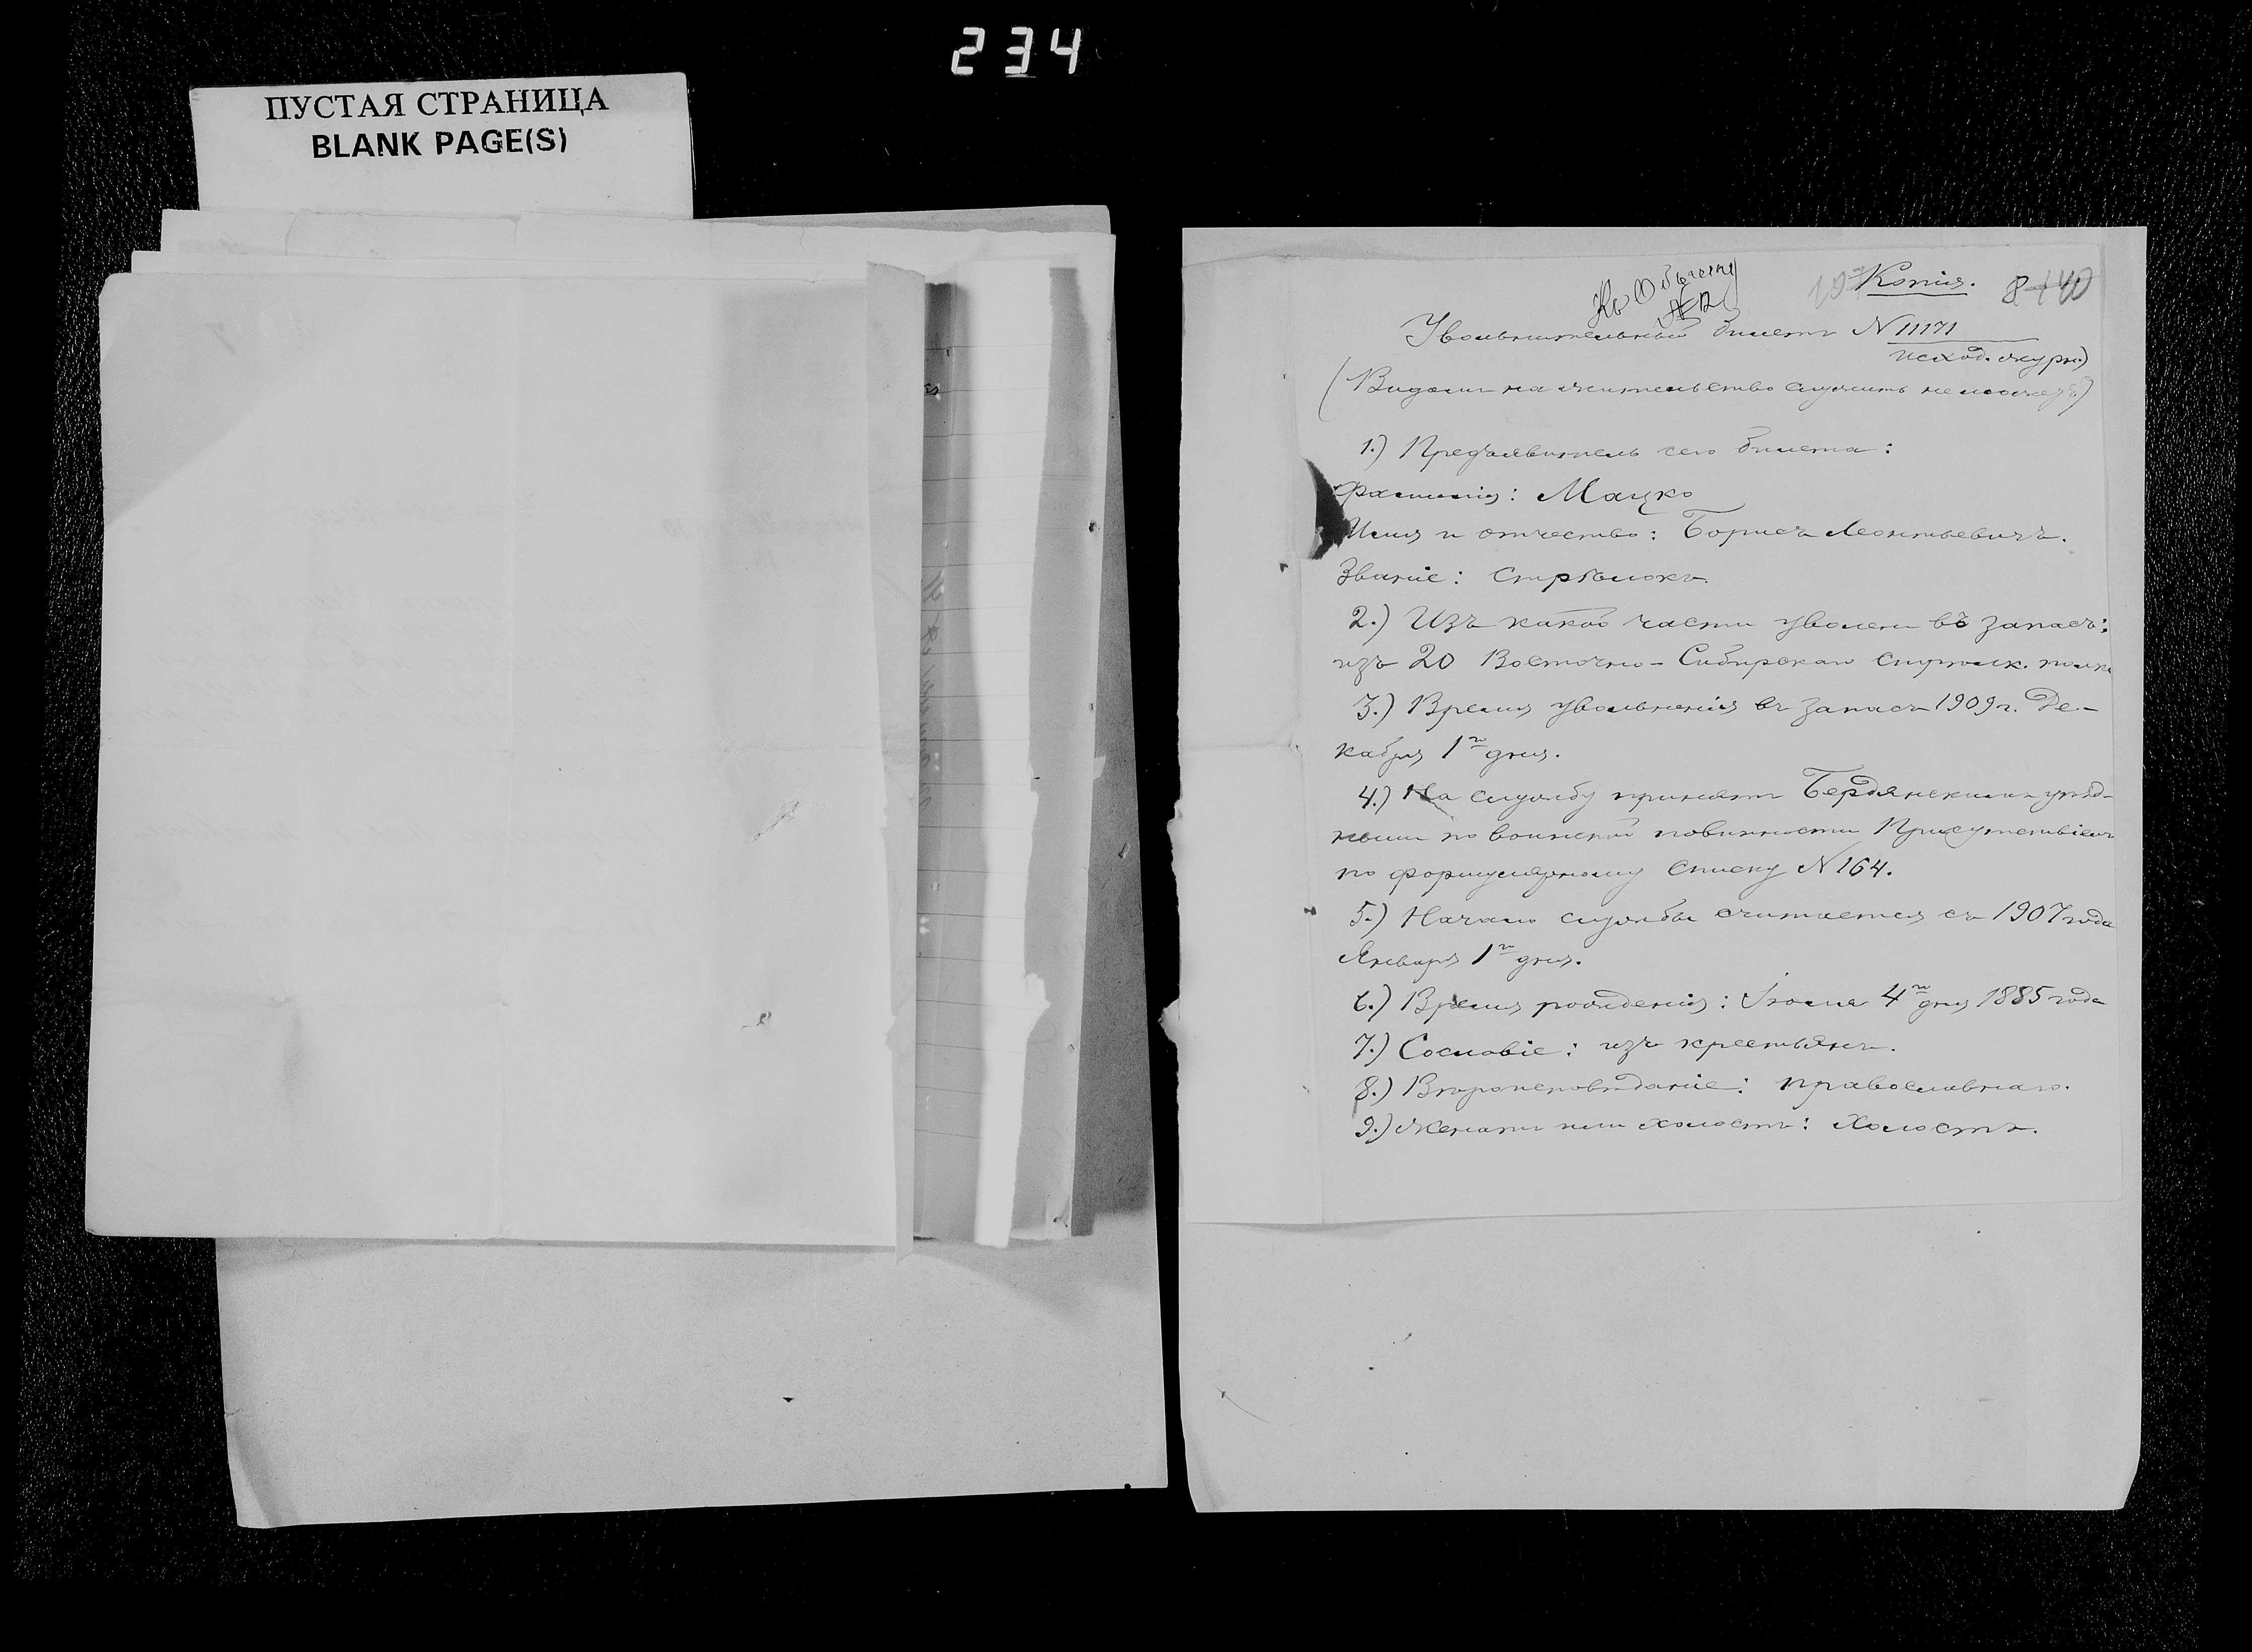 234
ПУСТАЯ СТРАНИЦА
BLANK PAGE(S)
Копія.
Увольнительный билетъ N 11171
исход. журн.)
(Видомъ на жительство служить не можетъ)
1.) Предъявитель сего билета:
Фамилія: Мацко
Имя и отчество: Борисъ Леонтьевичъ.
Званіе: Стрѣлокъ.
2.) Изъ какой части уволенъ въ запасъ:
изъ 20 Восточно-Сибирскаго стрѣлк. полка
3.) Время увольненія въ запасъ 1909 г. Де-
кабря 1го дня.
4.) На службу принятъ Бердянскимъ уѣзд-
нымъ по воинской повинности Присутствіемъ
по формулярному списку N 164.
5.) Начало службы считается съ 1907 года
Января 1го дня.
6.) Время рожденія: Іюля 4го дня 1885 года
7.) Сословіе: изъ крестьянъ.
8.) Вѣроисповѣданіе: православнаго.
9.) Женатъ или холостъ: Холостъ.